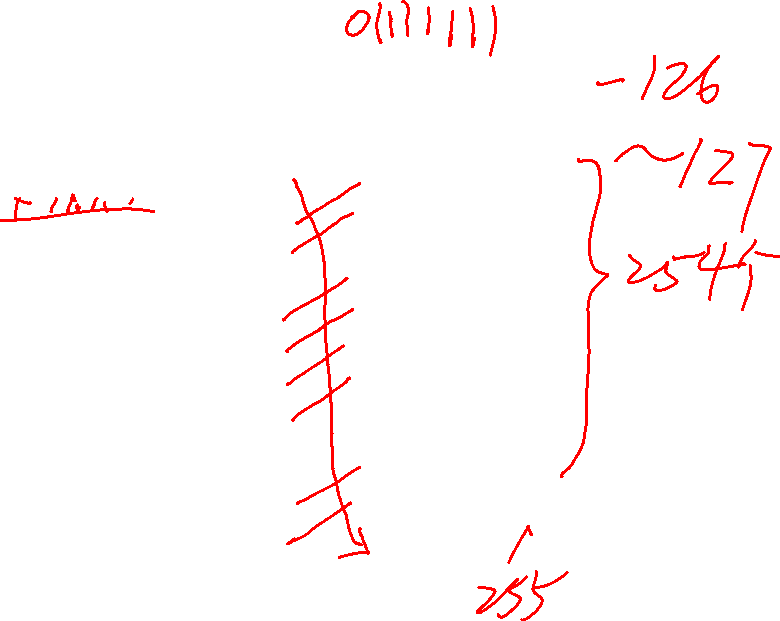 01111111
-126
~127
255